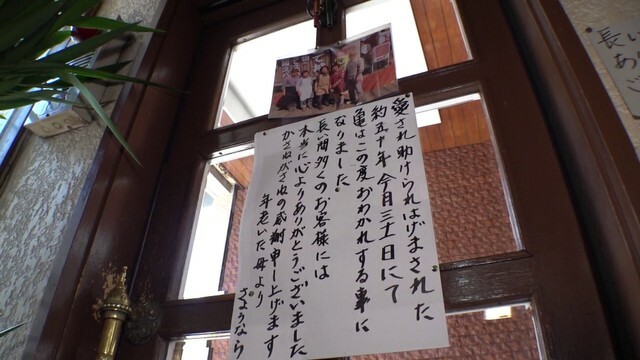 愛され助けられはげまされた
約五十年今月三十一日にて
亀はこの度おわかれする事に
なりました。
長い間多くのお客様には
本当に心よりありがとうございました
かさねがさねの感謝申し上げます
年老いた母より
さようなら
長い
あ